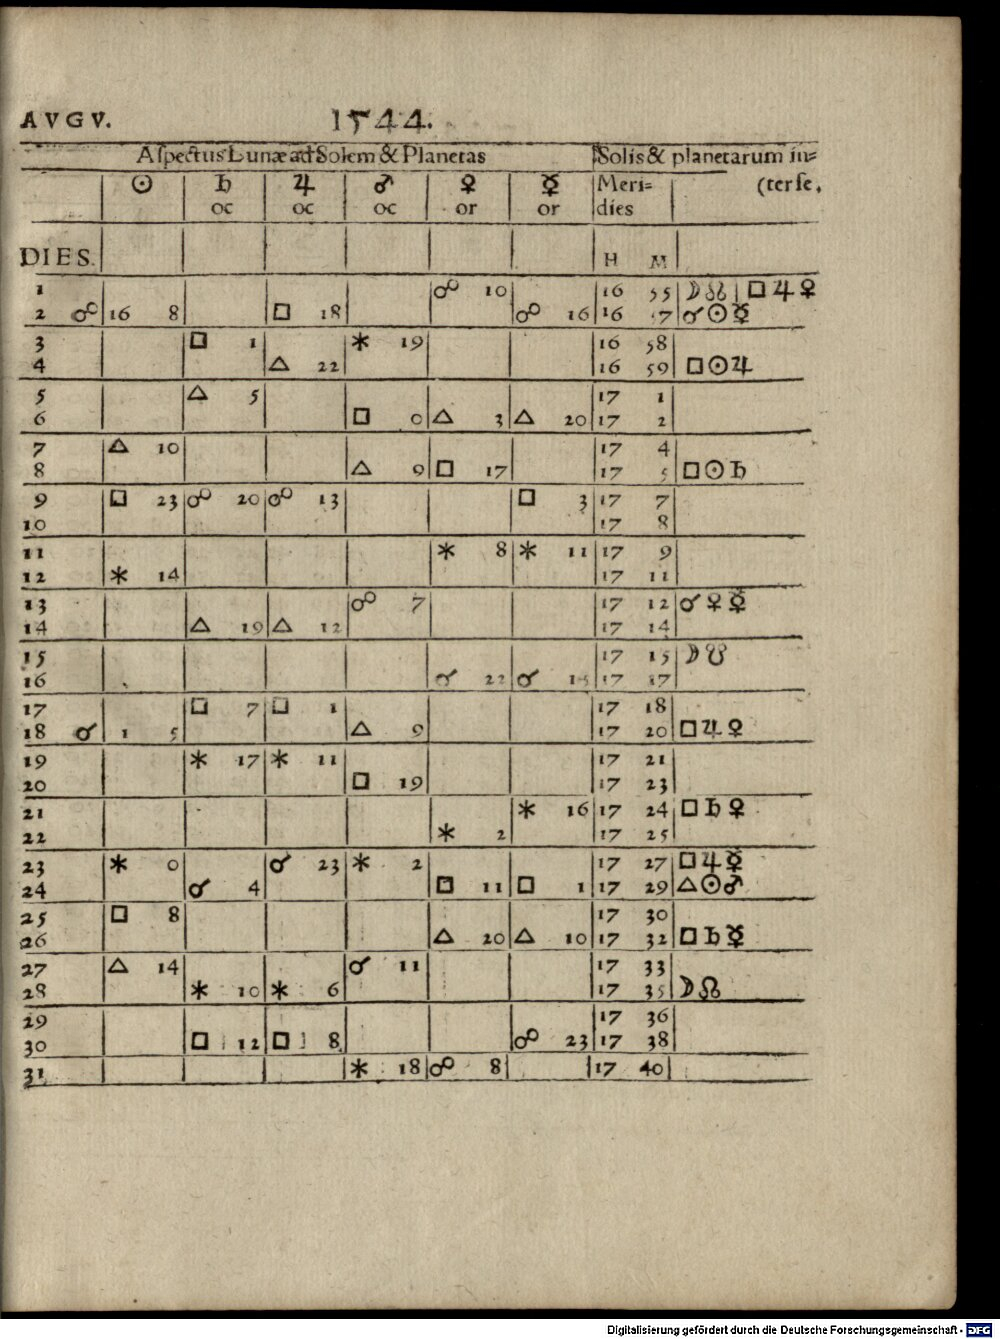 AVGV. 1544.
Aſpectus Lunæ ad Solem & Planetas Solis & planetarum in=
☉ ♄ ♃ ♂ ♀ ☿ Meri= (terſe.
oc oc oc or or dies
DIES. H M
1 ☍ 10 16 55 ☽☊ □♃♀
2 ☍ 16 8 □ 18 ☍ 16 16 57 ☌☉☿
3 □ 1 ⚹ 19 16 58
4 △ 22 16 59 □☉♃
5 △ 5 17 1
6 □ 0 △ 3 △ 20 17 2
7 △ 10 17 4
8 △ 9 □ 17 17 5 □☉♄
9 □ 23 ☍ 20 ☍ 13 □ 3 17 7
10 17 8
11 ⚹ 8 ⚹ 11 17 9
12 ⚹ 14 17 11
13 ☍ 7 17 12 ☌♀☿
14 △ 19 △ 12 17 14
15 17 15 ☽☋
16 ☌ 22 ☌ 17 17
17 □ 7 □ 1 17 18
18 ☌ 1 5 △ 9 17 20 □♃♀
19 ⚹ 17 ⚹ 11 17 21
20 □ 19 17 23
21 ⚹ 16 17 24 □♄♀
22 ⚹ 2 17 25
23 ⚹ 0 ☌ 23 ⚹ 2 17 27 □♃☿
24 ☌ 4 □ 11 □ 1 17 29 △☉♂
25 □ 8 17 30
26 △ 20 △ 10 17 32 □♄☿
27 △ 14 ☌ 11 17 33
28 ⚹ 10 ⚹ 6 17 35 ☽☊
29 17 36
30 □ 12 □ 8 ☍ 23 17 38
31 ⚹ 18 ☍ 8 17 40
Digitalisierung gefördert durch die Deutsche Forschungsgemeinschaft - DFG